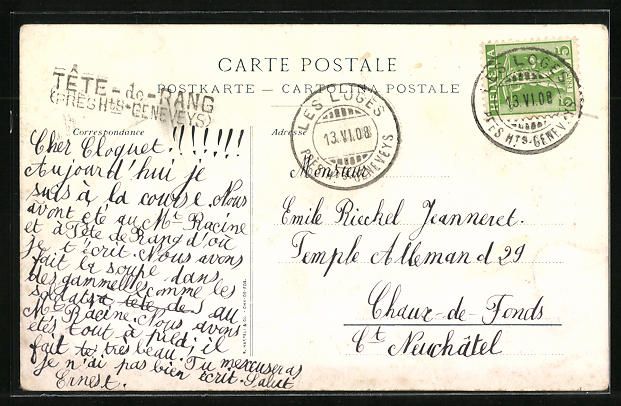 CARTE POSTALE
POSTKARTE — CARTOLINA POSTALE
A
TÊTE-de-RANG
(PRÈS Hts-GENEVEYS)
LES LOGES
13.VI.08
PRÈS HTS-GENEVEYS
HELVETIA
5
LES LOGES
13.VI.08
PRÈS HTS-GENEVEYS
Correspondance
Cher Cloquet !!!!!!!
Aujourd'hui je
suis à la course. Nous
avont été au Mt Racine
et à Tête de Rang d'où
je t'écrit. Nous avons
fait la soupe dans
des gammelles comme les
soldats tête des au
Mt Racine. Nous avons
étés tout à pied. il
fait te très beau. Tu mexcuseras
je n'ai pas bien écrit. Salut
Ernest.
Adresse
Monsieur
Emile Riechel Jeanneret.
Temple Allemand 29
Chaux-de-Fonds
Ct Neuchâtel